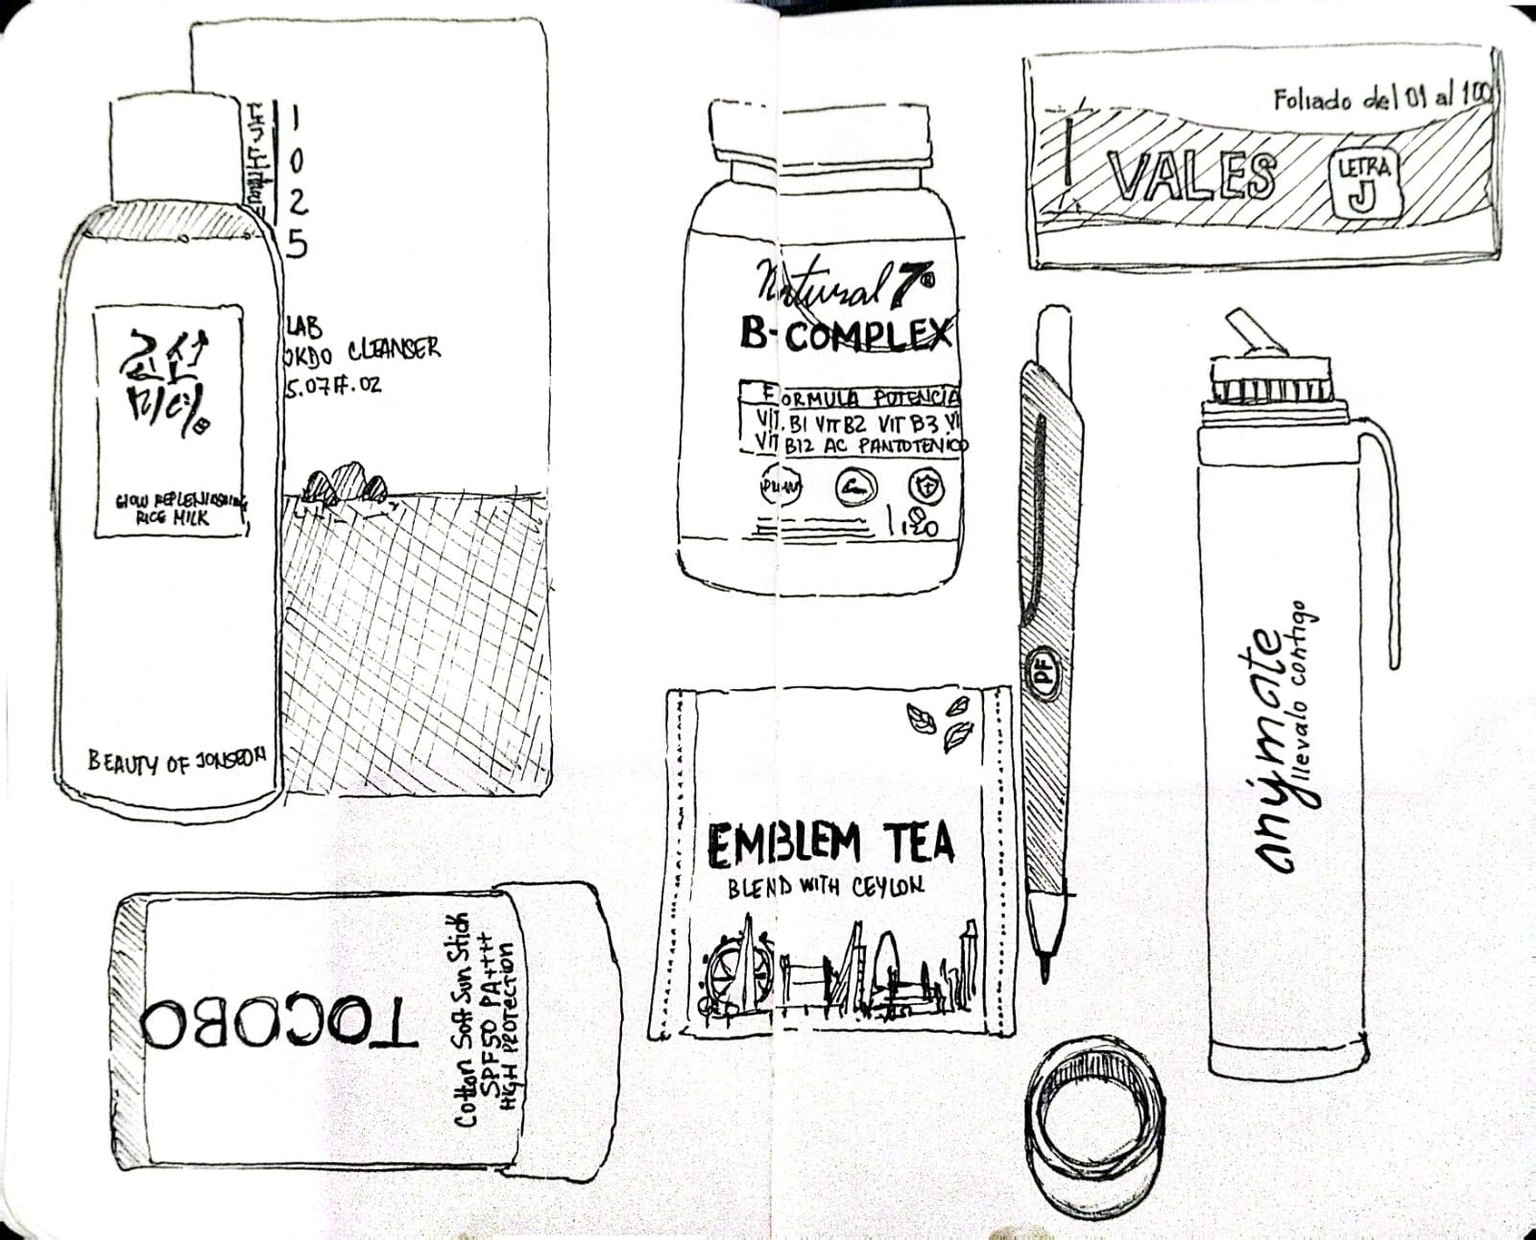 1
0
2
5
LAB
OKDO CLEANSER
5.07 Ft. 02
조선
미녀
GLOW REPLENISHING
RICE MILK
BEAUTY OF JONSEON
TOCOBO
Cotton Soft Sun Stick
SPF50 PA+++
HIGH PROTECTION
Natural 7®
B-COMPLEX
FORMULA POTENCIA
VIT. B1 VIT B2 VIT B3 VI
VIT B12 AC PANTOTENICO
120
EMBLEM TEA
BLEND WITH CEYLON
Foliado del 01 al 100
VALES
LETRA
J
PF
anýmate
llevalo contigo